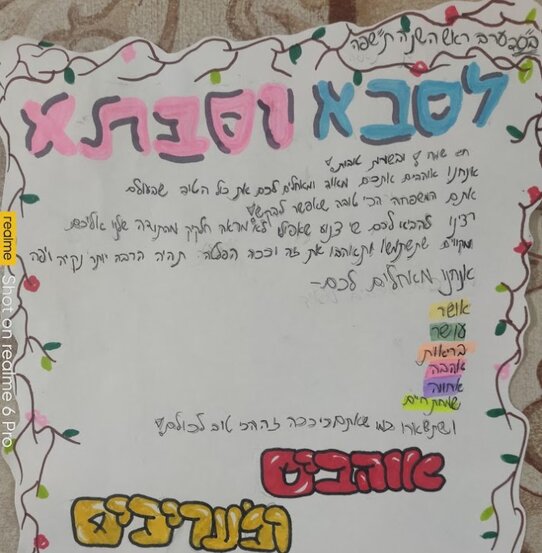 בס"ד ערב ראש השנה תשפה
לסבא וסבתא
חג שמח ובשורות טובות!
אנחנו אוהבים אתכם מאוד ומאחלים לכם את כל הטוב שבעולם
אתם המשפחה הכי טובה שאפשר לבקש!
רצינו להביא לכם שי צנוע שאפילו לא מראה חלקיק מהתודה שלנו אליכם.
מקווים שתשתמשו ותאהבו את זה וככה הפלטה תהיה הרבה יותר נקיה ויפה
אנחנו מאחלים לכם-
אושר
עושר
בריאות
אהבה
אחווה
שמחת חיים
ושתשארו כמו שאתם כי ככה זה הכי טוב לכולם!
אווהבים
ומעריכים
realme Shot on realme 6 Pro